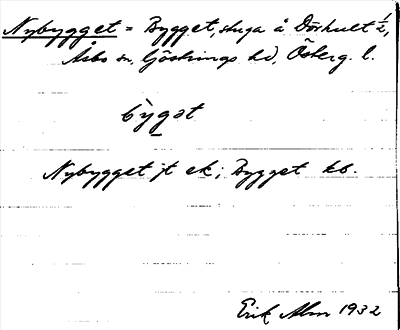 Nybygget = Bygget, stuga å Dörhult 1/2,
Åsbo sn, Göstrings hd, Österg. l.
bygat
Nybygget jt ek; Bygget kb.
Erik Alm 1932